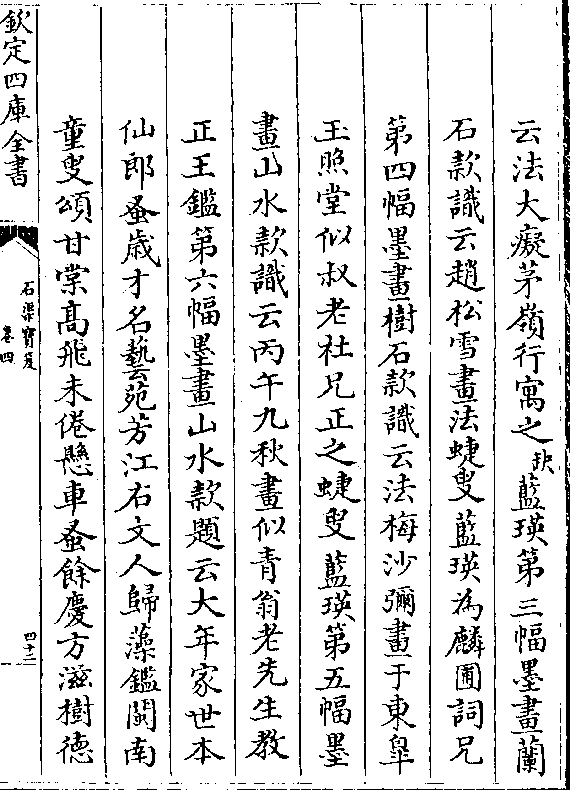 云法大癡茅嶺行寓之缺藍瑛第三幅墨畫蘭
石款識云趙松雪畫法蜨叟藍瑛為麟圃詞兄
第四幅墨畫樹石款識云法梅沙彌畫于東皐
玉照堂似叔老社兄正之蜨叟藍瑛第五幅墨
畫山水款識云丙午九秋畫似青翁老先生教
正王鑑第六幅墨畫山水款題云大年家世本
仙郎蚤歲才名藝苑芳江右文人歸藻鑑閩南
童叟頌甘棠髙飛未倦懸車蚤餘慶方滋樹德
欽定四庫全書
石渠寶笈
卷四
四十二